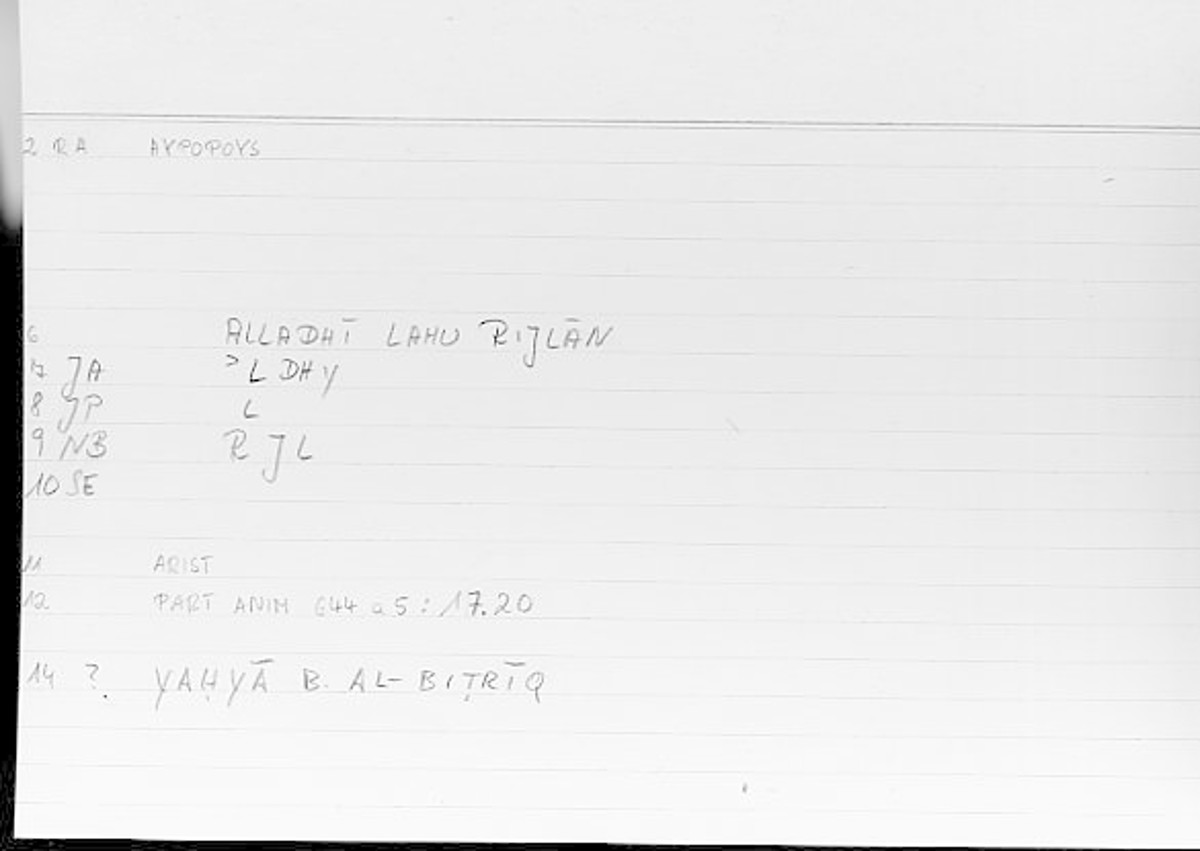 2 RA AYPOPOYS
6 ALLADHĪ LAHU RIJLĀN
7 JA >L DHY
8 JP L
9 NB R J L
10 SE
11 ARIST
12 PART ANIM 644 a 5 : 17.20
14 ? YAḤYĀ B. AL-BIṬRĪQ